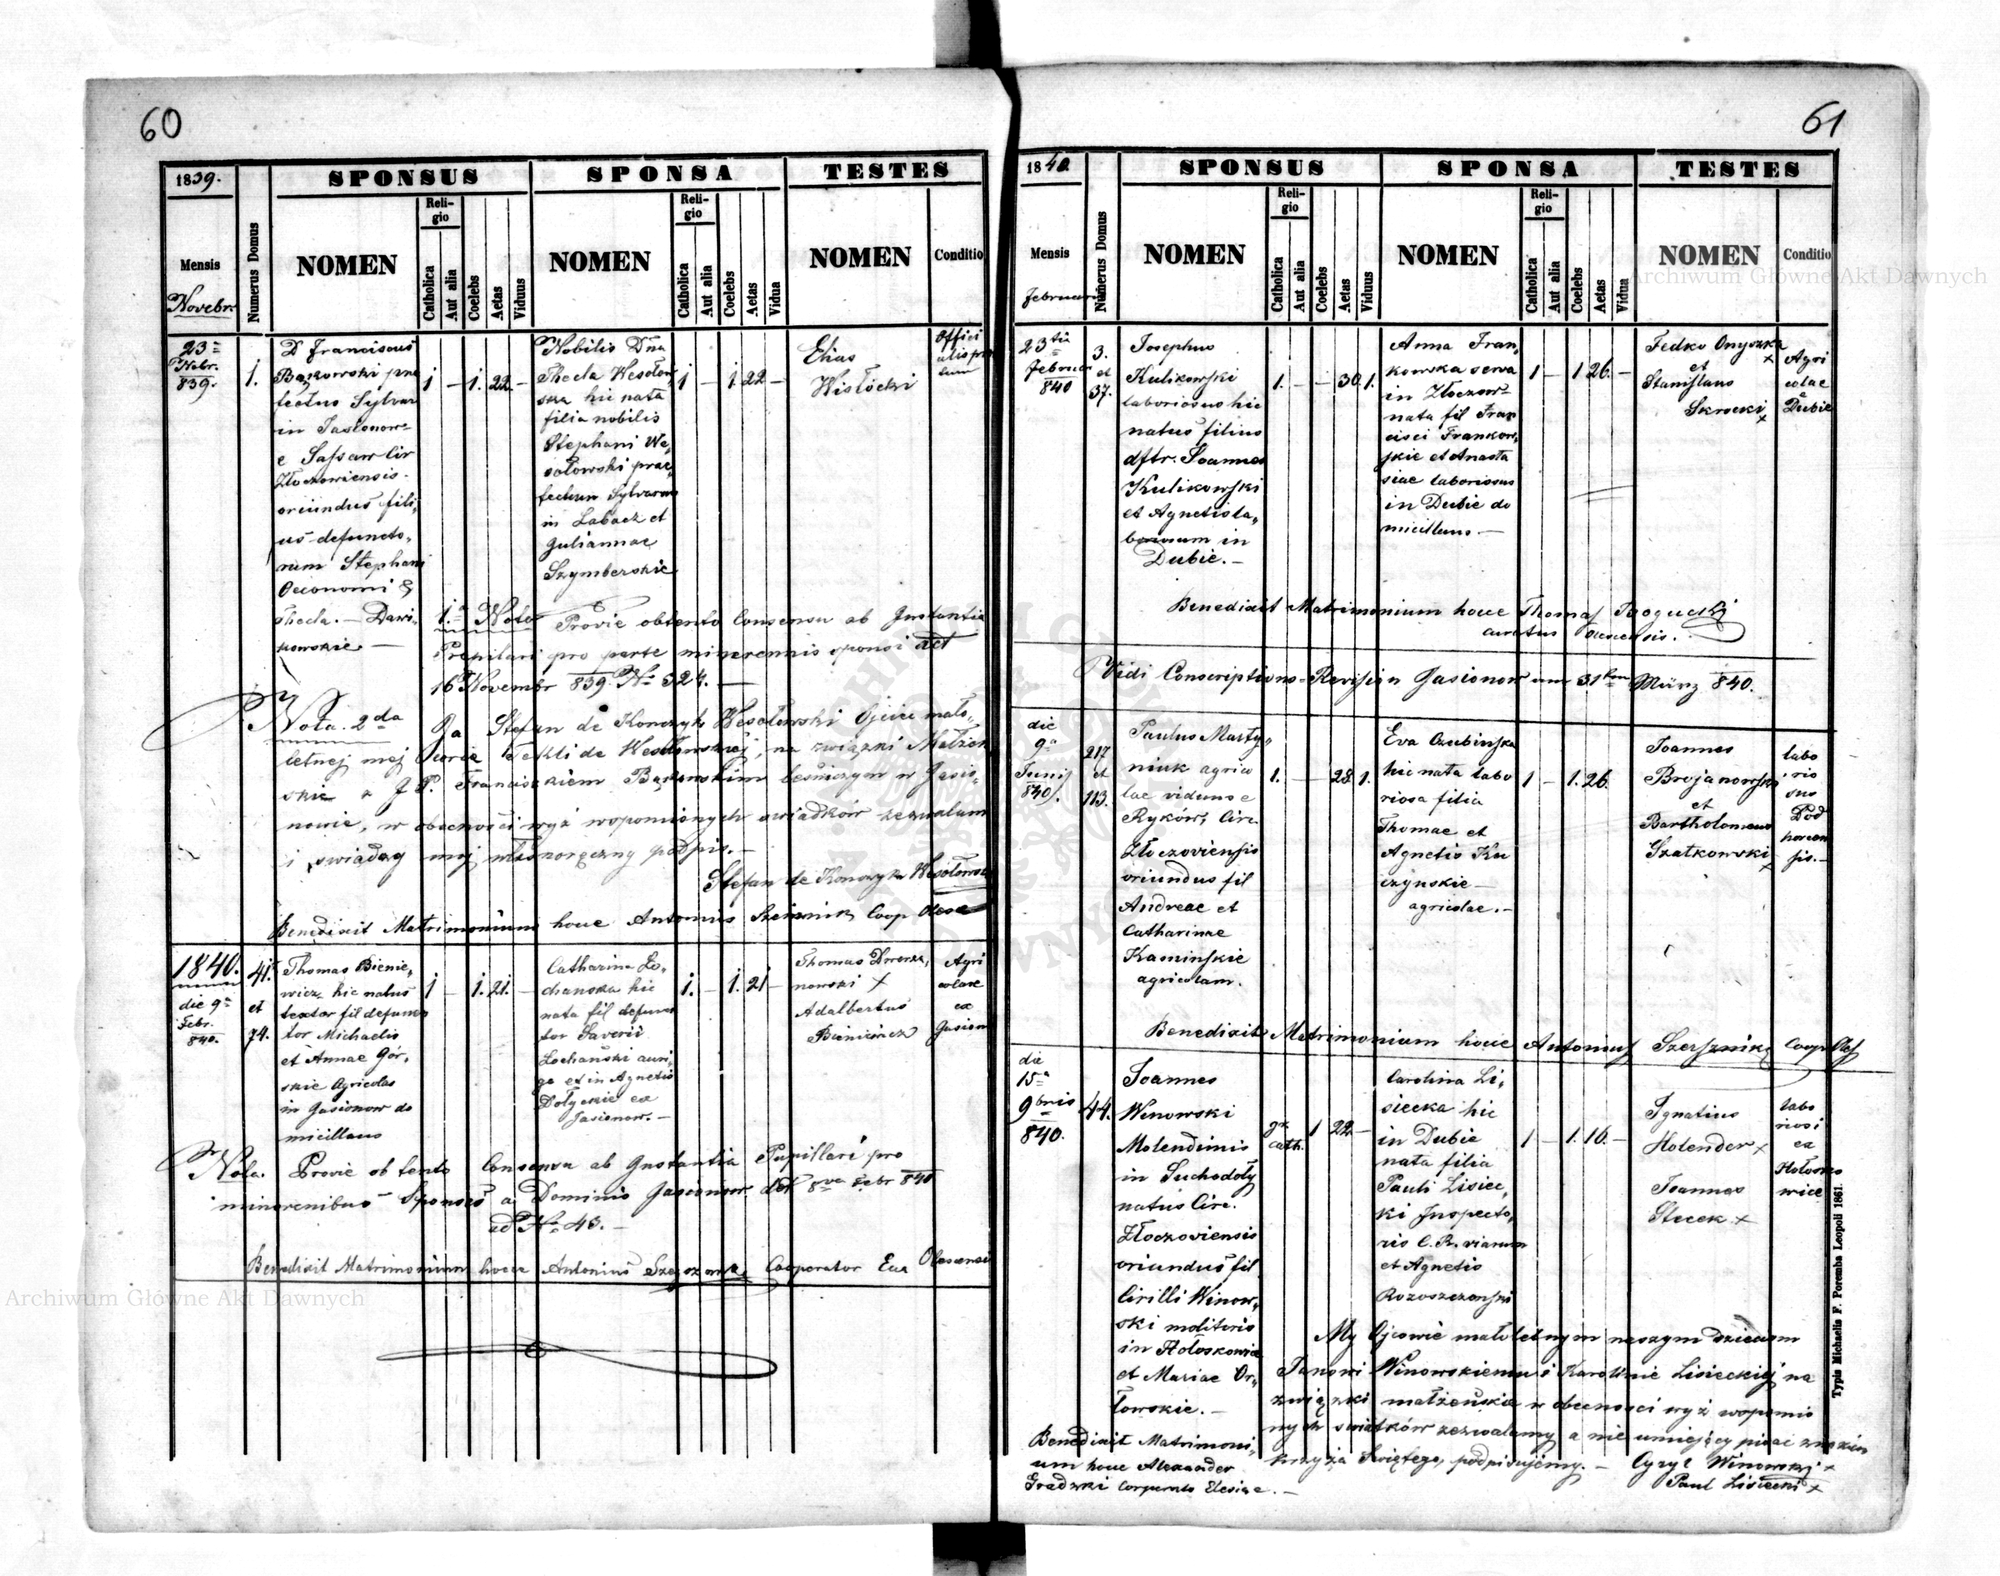 60
1839.
SPONSUS
SPONSA
TESTES
Mensis
Novebr.
Numerus Domus
NOMEN
Religio
Catholica
Aut alia
Coelebs
Aetas
Viduus
NOMEN
Religio
Catholica
Aut alia
Coelebs
Aetas
Vidua
NOMEN
Conditio
23
839.
1.
D Franciscus
in
Sassaw Cir
oriundus fili,
us defuncto,
rum Stephani
Oeconomi &
Thecla. — Dawi,
kowskie. —
1 — 1. 22 —
Nobilis Dna
Thecla Wesołow,
ska hic nata
filia nobilis
Stephani We,
sołowski prae,
fectum Sylvarum
in Labacz et
Julianna
Szymberskie
1 — 1 22 —
Elias
Wisłocki
1. Nota Previe obtento Consensu ab Instantia
Pupilari pro parte minorennis sponsi
16 Novembr 839. No 524. —
Nota. 2da Ja Stefan de Kończyk Wesołowski Ojciec mało,
letnej mej Teklide Wesołowskiej, na związki Małżeń
skie z J P. Franciszkiem leśniczym w Jasio,
nowie, w obecności wyż wspomionych świadków zezwalam
i mój własnoręczny podpis. —
Stefan de Kończyk Wesołowski
Benedixit Matrimonium hocce Antonius Coop Olesc
1840.
die 9a
Febr.
840.
41.
et
74.
Thomas Bienie,
wicz hic natus
textor fil defunc
tor Michaelis
et Annae Gór,
skie Agricolas
in Jasionow do
micillans
1 — 1. 21. —
Catharina Ło,
chanska hic
nata fil defunc
tor Saverii
Łochański auri,
ga et in Agnetis
ex
Jasionow. —
1. — 1. 21 —
Thomas
nowski ×
Adalbertus
Bieniewicz
Agri
colae
ex
Jasion
Nota. Previe obtento Consensu ab Instantia Pupillari pro
minorenibus Sponsis a Dominio Jasionow 8va Febr 840
ad No 43. —
Benedixit Matrimonium hocce Antonius Cooperator Olescensis
61
1840
SPONSUS
SPONSA
TESTES
Mensis
Februari
Numerus Domus
NOMEN
Religio
Catholica
Aut alia
Coelebs
Aetas
Viduus
NOMEN
Religio
Catholica
Aut alia
Coelebs
Aetas
Vidua
NOMEN
Conditio
23tia
Februar
840
3.
et
37.
Josephus
Kulikowski
laboriosus hic
natus filius
dftr. Joannes
Kulikowski
et Agnetis la,
borosum in
Dubie. —
1. — — 30 1.
Anna Fran,
kowska serva
in Złoczow
nata fil Fran
cisci Frankow,
skie et Anasta
siae laboriosus
in Dubie do
micillans —
1 — 1 26. —
Fedko Onyszka
×
et
Stanislaus
Skrocki ×
Agri
colae
e
Dubie
Benedixit Matrimonium hocce Thomas
curatus
Vidi Conscriptions-Revision Jasionow am 31ten März 840.
die
9a
Junij
840.
217
et
113.
Paulus Marty,
niuk agrico
lae viduus e
Ryków, Circ.
Złoczoviensis
oriundus fil
Andreae et
Catharinae
Kaminskie
agricolam.
1. — — 28 1.
Eva Czubinska
hic nata labo
riosa filia
Thomae et
Agnetis Ku
czynskie —
agricolae. —
1 — 1. 26.
Joannes
Brojanowski
et
Bartholomeus
Szatkowski ×
labo
rio
sus
Pod
horcen
sis. —
Benedixit Matrimonium hocce Antonius Szersznik Coop Oles
die
15a
9bris
840.
44.
Joannes
Winowski
Molendinis
in Suchodoły
natus Circ.
Złoczoviensis
oriundus fil
Cirilli Winow,
ski molitoris
in Hołoskowice
et Mariae Or,
łowskie. —
gr.
cath. 1 22 —
Carolina Li,
siecka hic
in Dubie
nata filia
Pauli Lisiec,
ki Inspecto,
ris C. R. viarum
et Agnetis
1 — 1. 16. —
Ignatius
Holender ×
Joannes
Stecek ×
labo
riosi
ex
Hołosko
wice
My Ojcowie małoletnym naszym dzieciom
Janowi Winowskiemu i Karolinie Lisieckiej na
związki małżeńskie w obecności wyż wspomio
nych świadków zezwalamy a nie umiejący pisać znakiem
krzyża Świętego, podpisujemy. — Cyryl Winowski ×
Paul Lisiecki ×
Benedixit Matrimoni,
um hocce Alexander
Gradzki
Typis Michaelis F. Poremba Leopoli 1861.
Archiwum Główne Akt Dawnych
Archiwum Główne Akt Dawnych